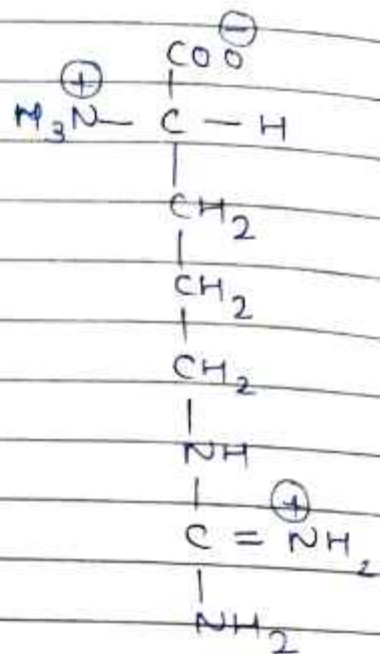 COO⊖
⊕
H3N — C — H
CH2
CH2
CH2
NH
⊕
C = NH2
NH2